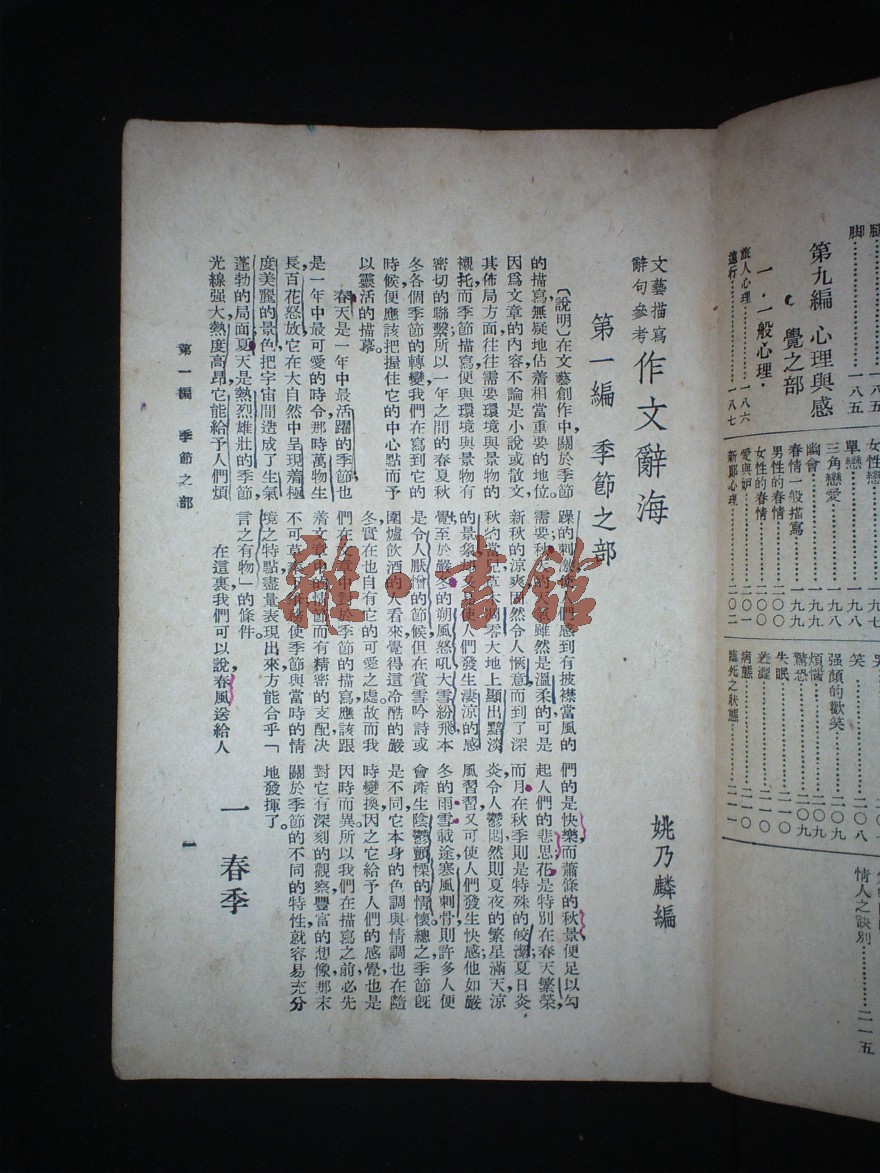 脚……………一八五
第九編 心理與感
覺之部
一．一般心理．
旅人心理…………一八六
遠行…………一八七
單戀…………一九八
三角戀愛…………一九八
幽會…………一九九
春情一般描寫…………一九九
男性的春情…………二〇〇
女性的春情…………二〇〇
愛與妒…………二〇一
新郎心理…………二〇二
笑…………二〇八
强顔的歡笑…………二〇九
煩惱…………二〇九
驚恐…………二〇九
失眠…………二一〇
羞澀…………二一〇
病態…………二一一
臨死之狀態…………二一一
情人之訣別…………二一五
文藝描寫
辭句參考
作文辭海
姚乃麟編
第一編 季節之部
〔說明〕在文藝創作中，關於季節
的描寫無疑地佔着相當重要的地位。
因爲文章的內容，不論是小說或散文，
其佈局方面，往往需要環境與景物的
襯托，而季節描寫便與環境與景物有
密切的聯繫所以一年之間的春夏秋
冬各個季節的轉變，我們在寫到它的
時候，便應該把握住它的中心點，而予
以靈活的描摹。
春天是一年中最活躍的季節，也
是一年中最可愛的時令，那時萬物生
長，百花怒放，它在大自然中呈現着極
度美麗的景色，把宇宙間造成了生氣
蓬勃的局面。夏天是熱烈雄壯的季節，
光線强大，熱度高昂，它能給予人們煩
躁的刺激，使人們感到有披襟當風的
需要。秋天的天氣雖然是溫柔的，可是
新秋的涼爽，固然令人愜意，而到了深
秋，約當紀草木凋零，大地上顯出黯淡
的景象，却又是使人們發生淒涼的感
覺。至於嚴冬的朔風怒吼，大雪紛飛，本
是令人厭憎的節候，但在賞雪吟詩或
圍爐飲酒的人看來，覺得這冷酷的嚴
冬，實在也自有它的可愛之處。故而我
們在文章中對於季節的描寫，應該跟
着文章中的情節而有精密的支配，决
不可草率從事，務使季節與當時的情
境之特點，盡量表現出來，方能合乎「
言之有物」的條件。
在這裏，我們可以說，春風送給人
們的是快樂，而蕭條的秋景，便足以勾
起人們的悲思。花是特別在春天繁榮，
而月在秋季則是特殊的皎潔；夏日炎
炎，令人鬱悶，然則夏夜的繁星滿天，涼
風習習，又可使人們發生快感；他如嚴
冬的雨雪載途，寒風刺骨，則許多人便
會產生陰鬱顫慄的情懷。總之，季節旣
是不同，它本身的色調與情調也在隨
時變換，因之它給予人們的感覺，也是
因時而異。所以我們在描寫之前，必先
對它有深刻的觀察，豐富的想像，那末
關於季節的不同的特性，就容易充分
地發揮了。
一 春季
第一編 季節之部
一
雜·書館